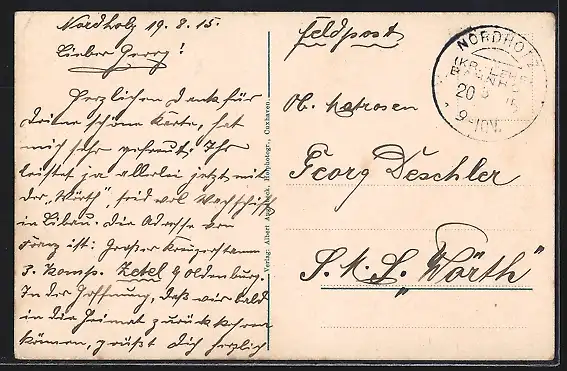 Nordholz 19.8.15.
Lieber Georg!
Herzlichen Dank für
Deine schöne Karte, hat
mich sehr gefreut. Ihr
leistet ja allerlei jetzt mit
der „Wörth“, seid wol Wachschiff
in Libau. Die Adresse von
Franz ist: Großer Kreuzerstamm
3. Komp. Zetel i/Oldenburg.
In der Hoffnung, daß wir bald
in die Heimat zurückkehren
können, grüßt Dich herzlich
Verlag: Albert Hofphotogr., Cuxhaven.
Feldpost
NORDHOLZ
(KR. LEHE)
BAHNHOF
20 8 15
9-10V.
Ob. Matrosen
Georg Deschler
S.M.S. „Wörth“